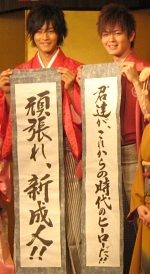 君達が、これからの時代のヒーローだ!!
頑張れ、新成人!!